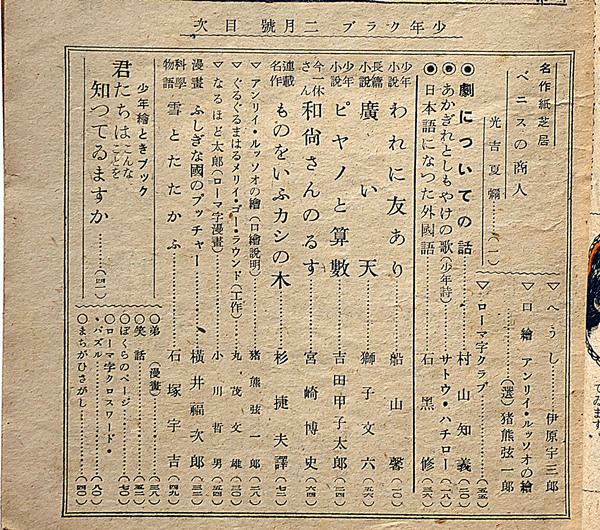 少年クラブ 二月號 目次
▽へうし……伊原宇三郎
▽口繪 アンリイ・ルッソオの繪
……(選)猪熊弦一郎
▽ローマ字クラブ……(五五)
名作紙芝居
ベニスの商人
光吉夏彌……(一一)
◉劇についての話……村山知義(二〇)
◉あかぎれとしもやけの歌(少年詩)……サトウ・ハチロー(一八)
◉日本語になつた外國語……石黑修(二六)
少年小說 われに友あり……船山馨(一〇)
長篇小說 廣い天……獅子文六(五六)
少年小說 ピヤノと算數……吉田甲子太郎(二四)
今一休さん 和尙さんのるす……宮崎博史(六四)
連載名作 ものをいふカシの木……杉捷夫譯(七二)
▽アンリイ・ルッソオの繪(口繪說明)……猪熊弦一郎(二八)
▽ぐるぐるまはるメリイ・ゴー・ラウンド(工作)……丸茂文雄(三〇)
▽なるほど太郎(ローマ字漫畫)……小川哲男(五四)
漫畫 ふしぎな國のプッチャー……橫井福次郎(三二)
科學物語 雪とたたかふ……石塚宇吉(四九)
少年繪ときブック
君たちはこんなことを
知つてゐますか……(四一)
○弟(漫畫)……(三八)
○笑話……(五二)
○ぼくらのページ……(七〇)
○ローマ字クロスワード・
・パズル……(八〇)
○まちがひさがし……(四〇)